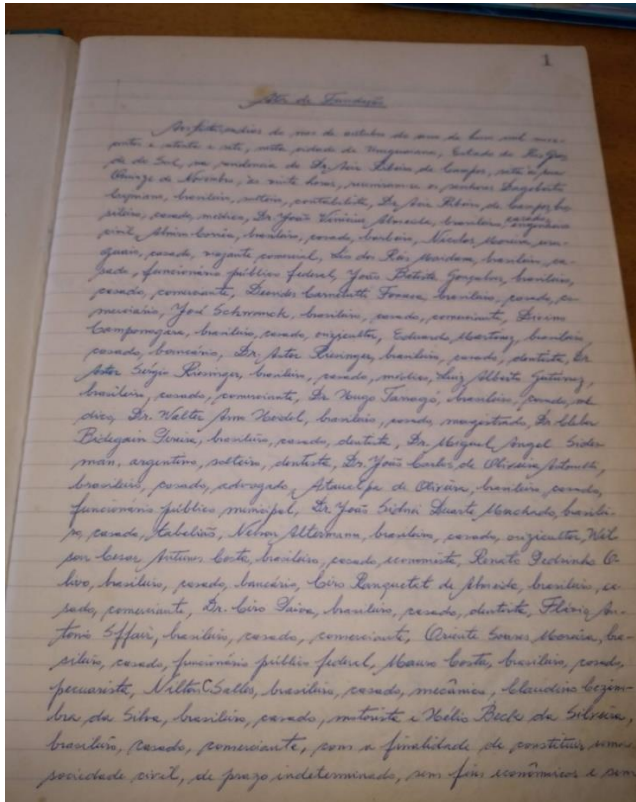 1
Ata de Fundação
dias do mês de outubro do ano de hum mil nove-
centos e oitenta e sete, nesta cidade de Uruguaiana, Estado do Rio Gran-
de do Sul, na residência do Dr. Ribeiro de Campos, sita à rua
Quinze de Novembro, às vinte horas, reuniram-se os senhores Dagoberto
brasileiro, solteiro, contabilista, Dr. Ribeiro de Campos, bra-
sileiro, casado, médico, Dr. João Vinicius Almeida, brasileiro, casado, engenheiro
civil, Corrêa, brasileiro, casado, bancário, Nicolas Moreira, uru-
guaio, casado, viajante comercial, dos Reis, brasileiro, ca-
sado, funcionário público federal, João Batista Gonçalves, brasileiro,
casado, comerciante, Fonseca, brasileiro, casado, co-
merciário, José, brasileiro, casado, comerciante,
Camponogara, brasileiro, casado, orizicultor, Eduardo Martinez, brasileiro,
casado, bancário, Dr. Astor Riesinger, brasileiro, casado, dentista, Dr.
Astor Sérgio Riesinger, brasileiro, casado, médico, Luiz Alberto Gutierrez,
brasileiro, casado, comerciante, Dr. Hugo, brasileiro, casado, mé-
dico, Dr. Walter, brasileiro, casado, magistrado, Dr. Cleber
Bidegain Pereira, brasileiro, casado, dentista, Dr. Miguel Angel Sider
man, argentino, solteiro, dentista, Dr. João Carlos de Oliveira,
brasileiro, casado, advogado, de Oliveira, brasileiro, casado,
funcionário público municipal, Dr. João Sidnei Duarte Machado, brasilei-
ro, casado, tabelião, Nelson Altermann, brasileiro, casado, orizicultor, Wil
son Cesar Antunes Costa, brasileiro, casado, economista, Renato Pedrinho O-
livo, brasileiro, casado, bancário, Ciro Ronquetet de Almeida, brasileiro, ca-
sado, comerciante, Dr. Ciro Paiva, brasileiro, casado, dentista, Flávio An-
tonio Saffair, brasileiro, casado, comerciante, Oriente Soares Moreira, bra-
sileiro, casado, funcionário público federal, Mauro Costa, brasileiro, casado,
pecuarista, Nilton C. Salles, brasileiro, casado, mecânico, Claudino Cezim-
bra da Silva, brasileiro, casado, motorista e Hélio Beck da Silveira,
brasileiro, casado, comerciante, com a finalidade de constituir uma
sociedade civil, de prazo indeterminado, sem fins econômicos e sem